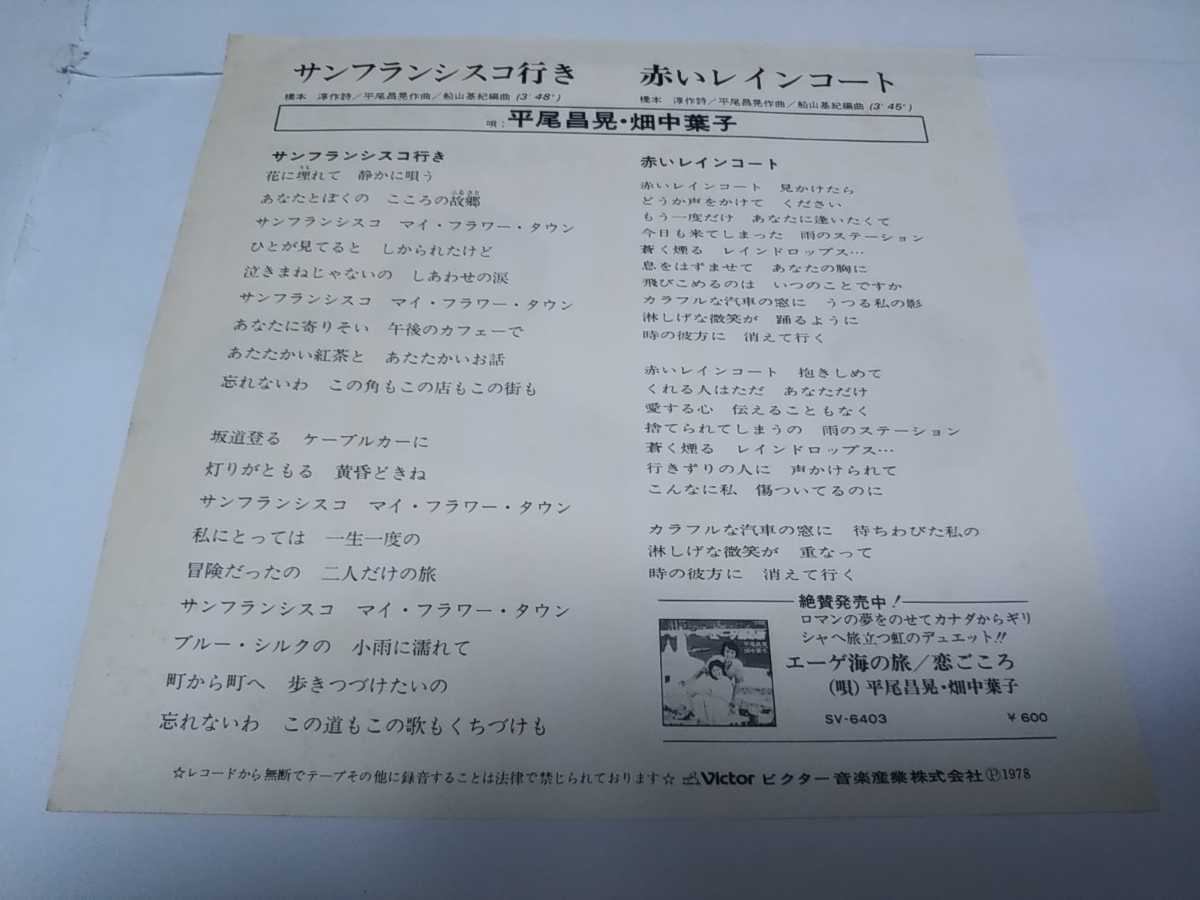 サンフランシスコ行き
橋本 淳作詩/平尾昌晃作曲/船山基紀編曲 (3'48")
赤いレインコート
橋本 淳作詩/平尾昌晃作曲/船山基紀編曲 (3'45")
唄:平尾昌晃・畑中葉子
サンフランシスコ行き
花に埋れて 静かに唄う
あなたとぼくの こころの故郷
サンフランシスコ マイ・フラワー・タウン
ひとが見てると しかられたけど
泣きまねじゃないの しあわせの涙
サンフランシスコ マイ・フラワー・タウン
あなたに寄りそい 午後のカフェーで
あたたかい紅茶と あたたかいお話
忘れないわ この角もこの店もこの街も
坂道登る ケーブルカーに
灯りがともる 黄昏どきね
サンフランシスコ マイ・フラワー・タウン
私にとっては 一生一度の
冒険だったの 二人だけの旅
サンフランシスコ マイ・フラワー・タウン
ブルー・シルクの 小雨に濡れて
町から町へ 歩きつづけたいの
忘れないわ この道もこの歌もくちづけも
赤いレインコート
赤いレインコート 見かけたら
どうか声をかけて ください
もう一度だけ あなたに逢いたくて
今日も来てしまった 雨のステーション
蒼く煙る レインドロップス…
息をはずませて あなたの胸に
飛びこめるのは いつのことですか
カラフルな汽車の窓に うつる私の影
淋しげな微笑が 踊るように
時の彼方に 消えて行く
赤いレインコート 抱きしめて
くれる人はただ あなただけ
愛する心 伝えることもなく
捨てられてしまうの 雨のステーション
蒼く煙る レインドロップス…
行きずりの人に 声かけられて
こんなに私 傷ついてるのに
カラフルな汽車の窓に 待ちわびた私の
淋しげな微笑が 重なって
時の彼方に 消えて行く
絶賛発売中!
ロマンの夢をのせてカナダからギリ
シャへ旅立つ虹のデュエット!!
エーゲ海の旅/恋ごころ
(唄)平尾昌晃・畑中葉子
SV-6403 ¥600
平尾昌晃
畑中葉子
☆レコードから無断でテープその他に録音することは法律で禁じられております☆ Victor ビクター音楽産業株式会社Ⓟ1978